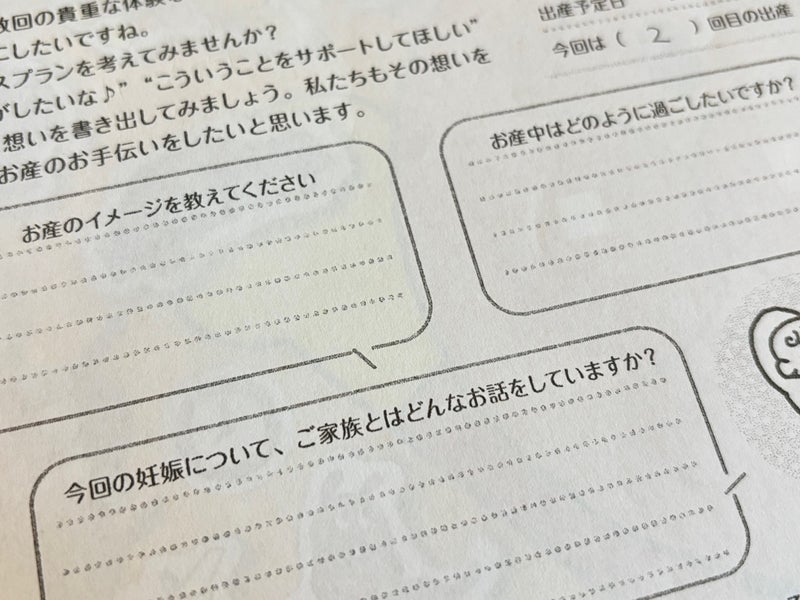 数回の貴重な体験を
にしたいですね。
スプランを考えてみませんか？
がしたいな♪” “こういうことをサポートしてほしい”
想いを書き出してみましょう。私たちもその想いを
お産のお手伝いをしたいと思います。
出産予定日
今回は（ 2 ）回目の出産
お産のイメージを教えてください
お産中はどのように過ごしたいですか？
今回の妊娠について、ご家族とはどんなお話をしていますか？